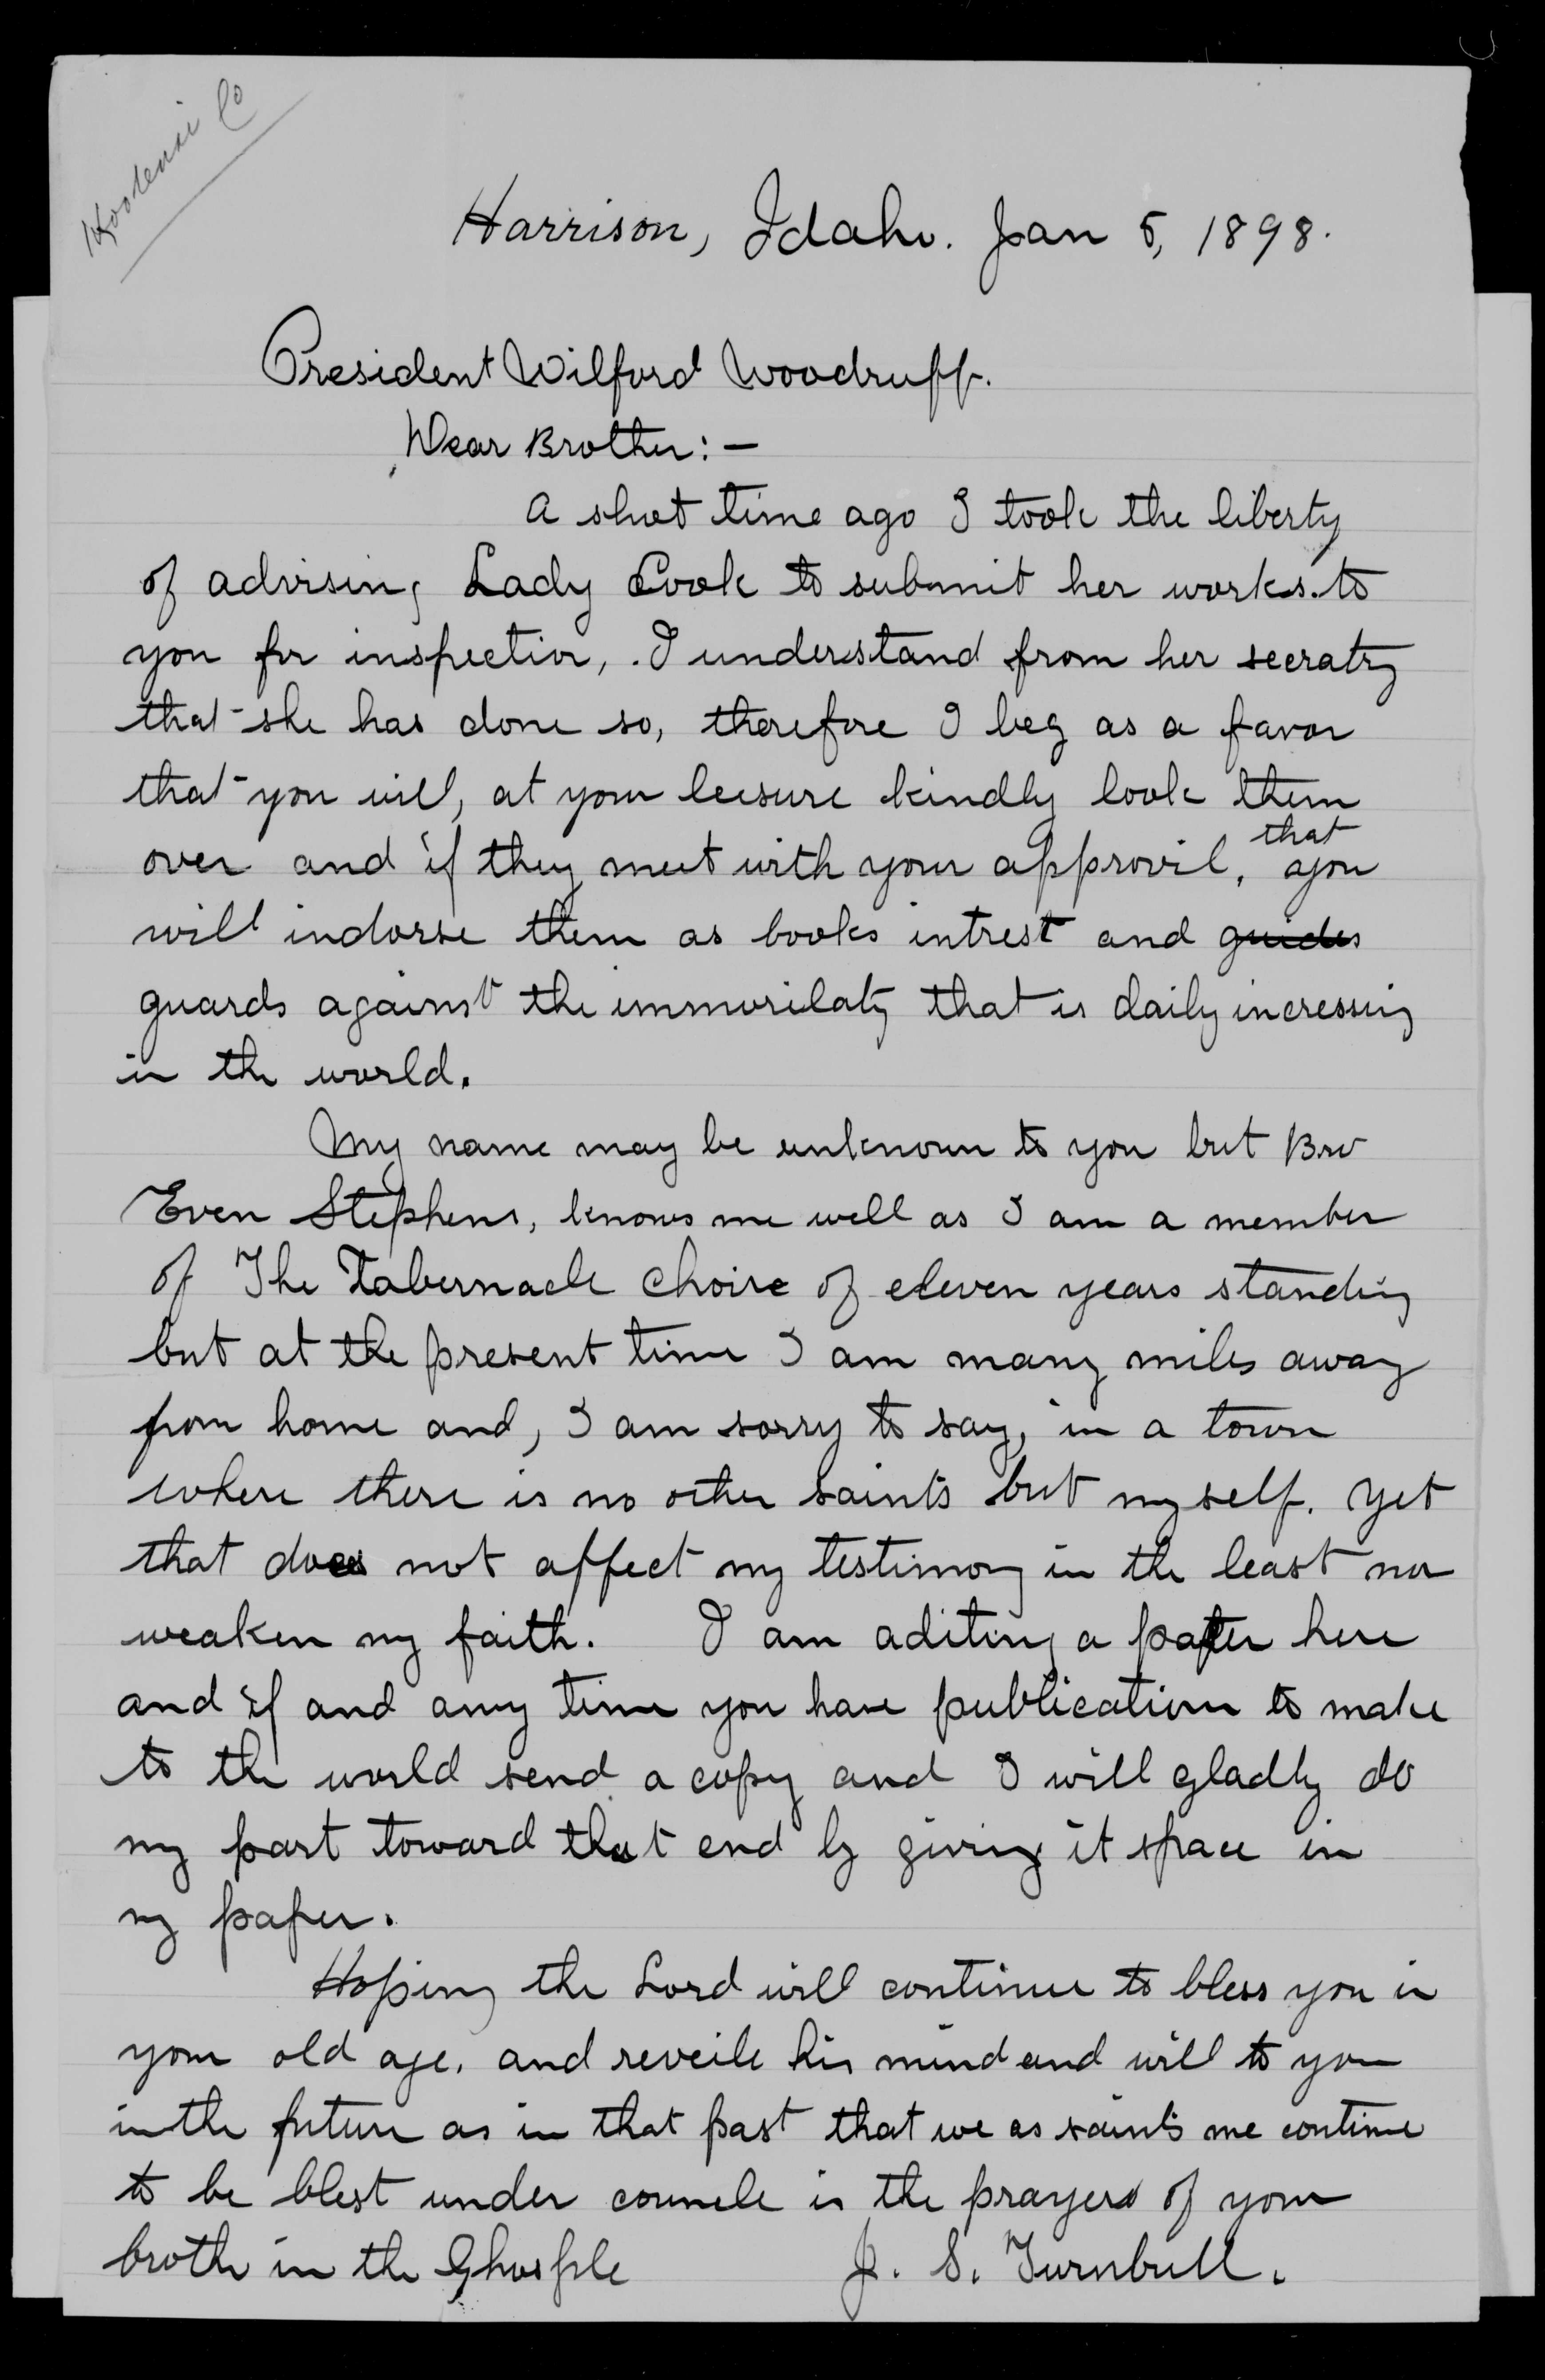 Kootenai Co
Harrison, Idaho. Jan 5, 1898.
President Wilford Woodruff.
Dear Brother:—
A shot time ago I took the liberty
of advising Lady Cook to submit her works to
you for inspection, I understand from her secratry
that she has done so, therefore I beg as a favor
that you will, at your leesure kindly look them
over and if they meet with your approvil, that you
will indorse them as books intrest and guides
guards against the immorilaty that is daily incressing
in the world.
My name may be unknown to you but Bro
Even Stephens, knows me well as I am a member
of The Tabernacle Choire of eleven years standing
but at the present time I am many miles away
from home and, I am sorry to say, in a town
where there is no other saints but myself. Yet
that does not affect my testimony in the least nor
weaken my faith. I am aditing a paper here
and if and any time you have publication to make
to the world send a copy and I will gladly do
my part toward that end by giving it space in
my paper.
Hoping the Lord will continue to bless you in
your old age, and reveile his mind and will to you
in the future as in that past that we as saints me continue
to be blest under councle is the prayers of your
broth in the Ghosple J. S. Turnbull.